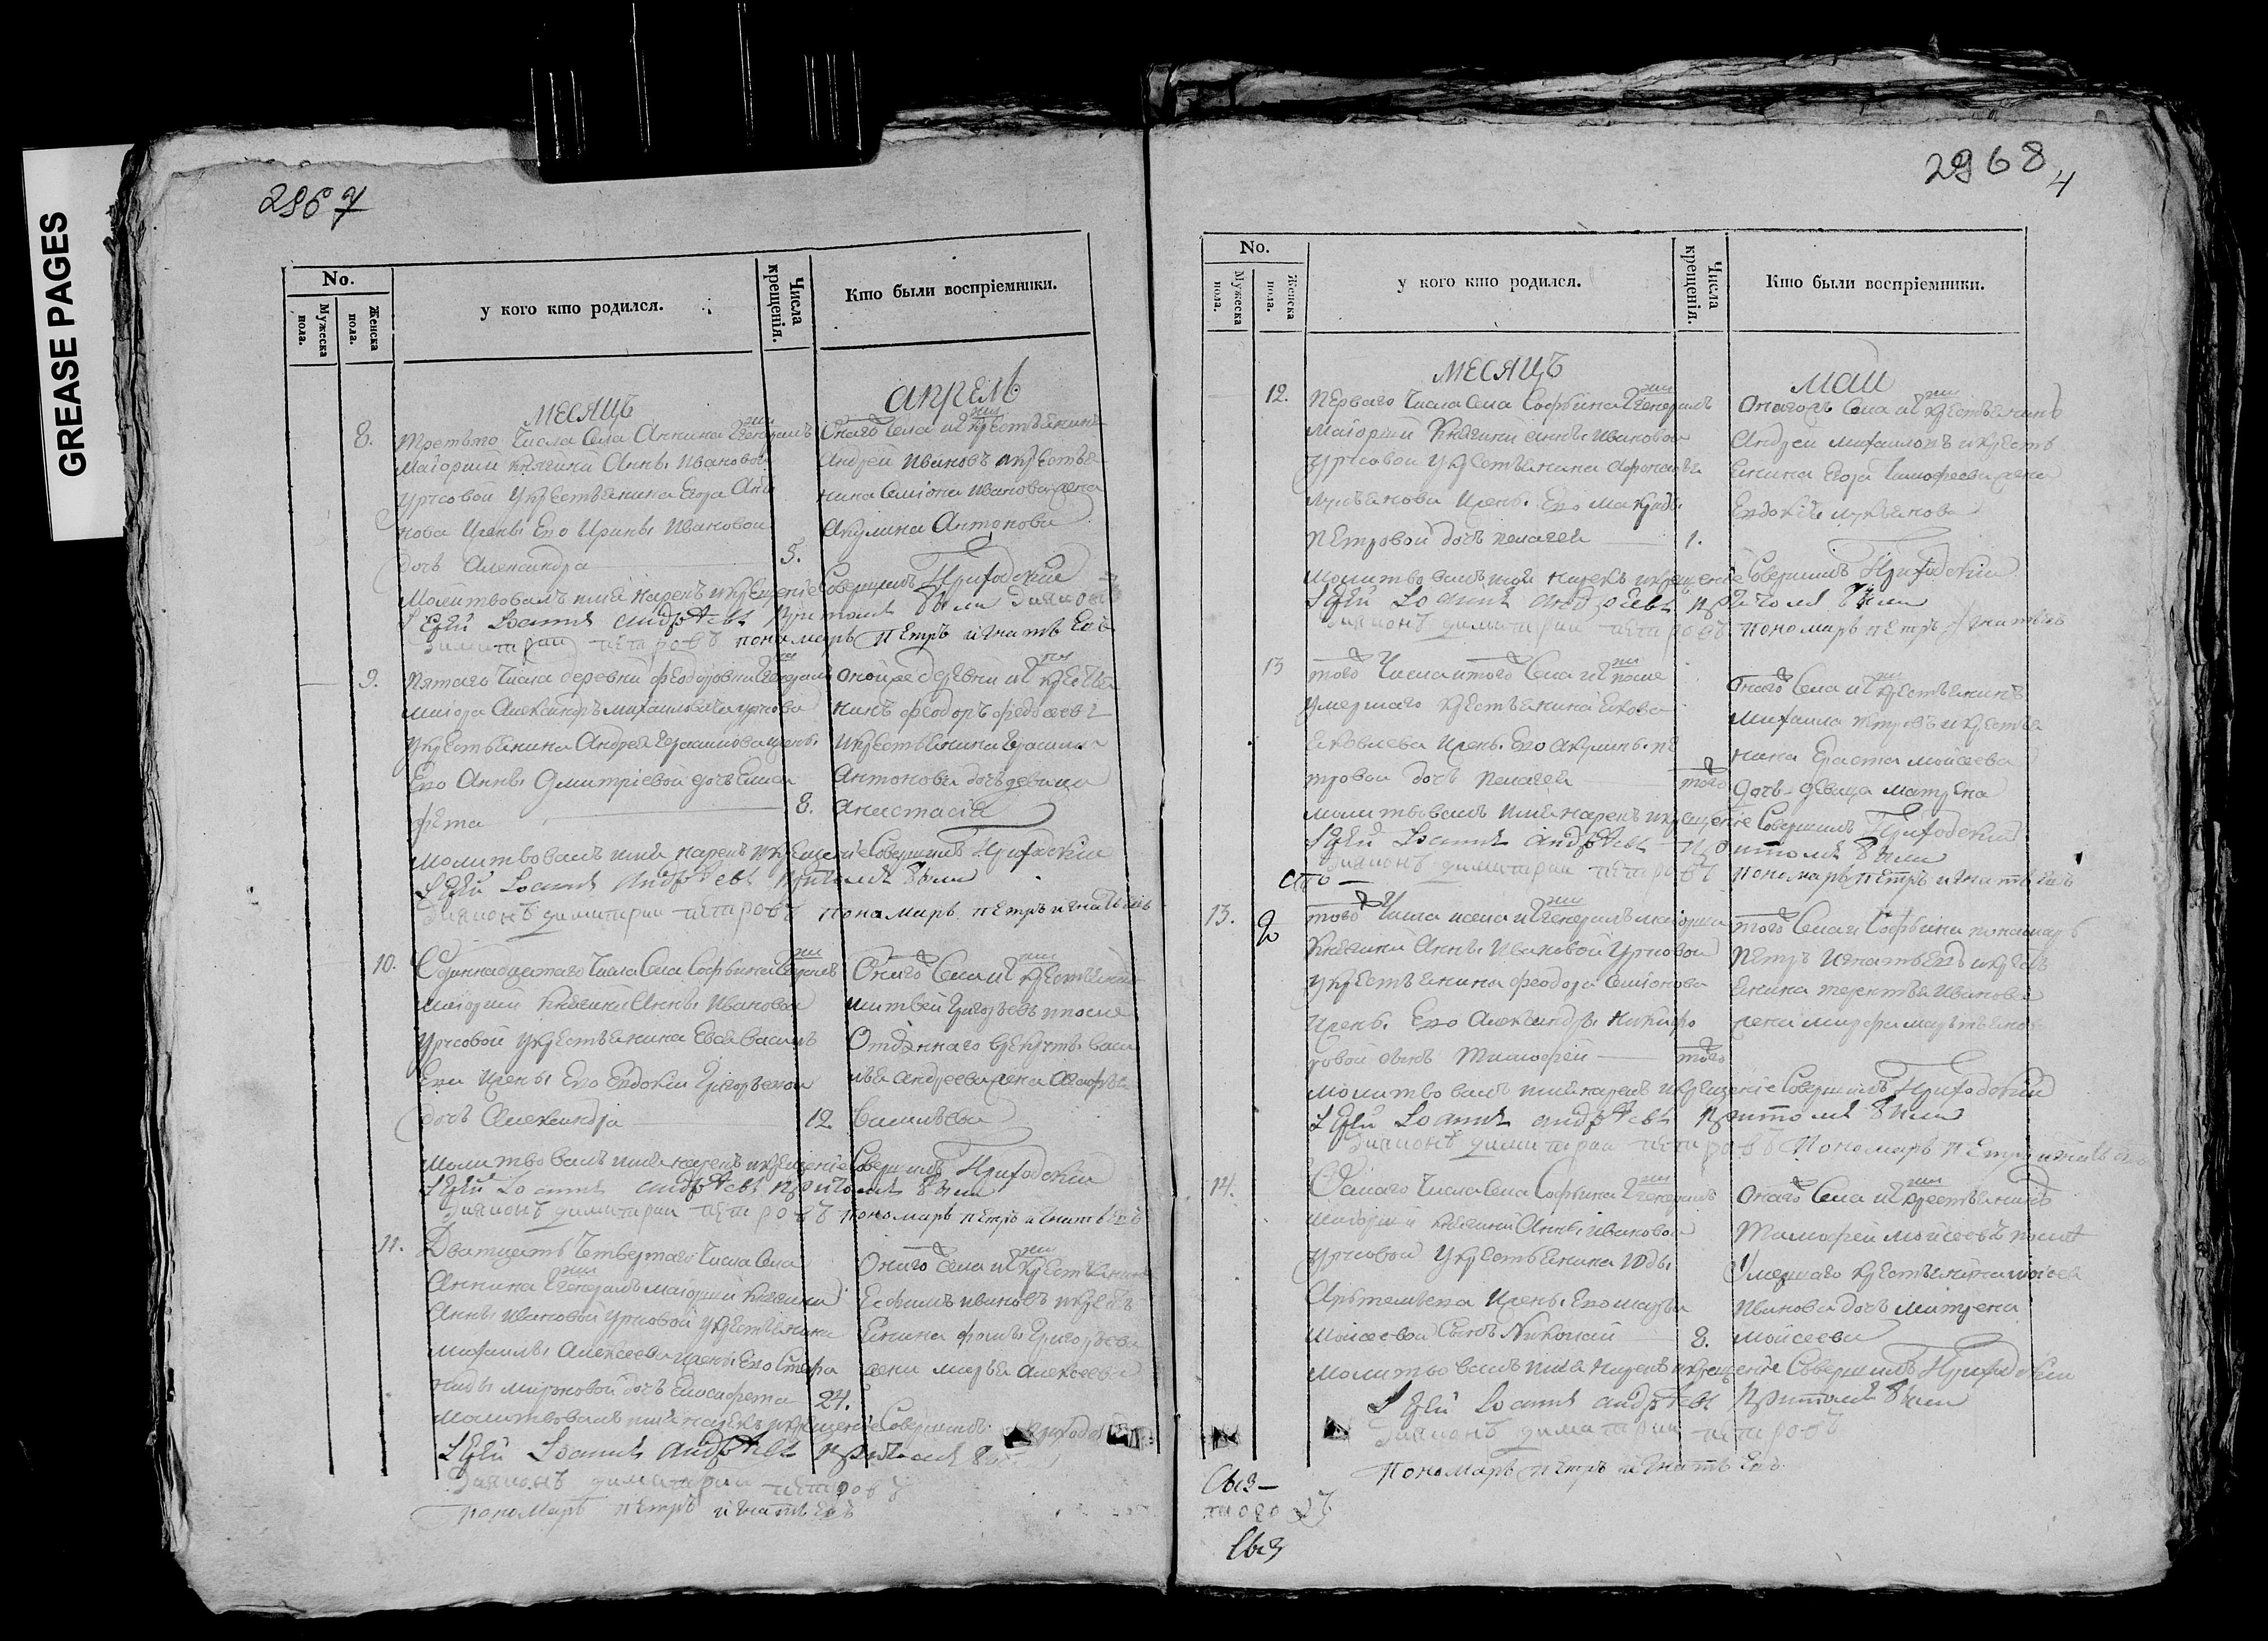 GREASE PAGES
2967
No.
Мужеска пола.
Женска пола.
у кого кто родился.
Числа крещенія.
Кто были воспріемники.
МЕСЯЦЪ
апрель
8.
Третьяго числа села Аннина генералъ
маіорши княгини Анны Ивановой
Урусовой у крестьянина Егора Анти
нова и жены Его Ирины Ивановой
дочь Александра
5.
Онаго села крестьянинъ
Андрей Ивановъ и крестья
нина Семіона Иванова жена
Акулина Антонова
Молитвовалъ имя нарекъ и крещеніе совершилъ Приходскій
Іерей Іоаннъ Андреевъ при томъ были диаконъ
димитрий петровъ пономарь Петръ Игнатьевъ
9.
Пятаго числа деревни Феодоровки генералъ
маіора Александръ михайловича Урусова
у крестьянина Андрея Герасимова и жены
Его Анны Дмитріевой дочь Елиса
фета
8.
оной же деревни крестья
нинъ Феодоръ
и крестьянина Герасима
Антонова дочь девица
Анастасія
Молитвовалъ имя нарекъ и крещеніе совершилъ Приходскій
Іерей Іоаннъ Андреевъ при томъ были
диаконъ димитрии петровъ пономарь петръ игнатьевъ
10.
Одиннадцатаго числа села Софьина генералъ
маіорши княгини Анны Ивановой
Урусовой у крестьянина Василь
Ева и жены Его Евдокіи Григорьевой
дочь Александра
12
Онаго села крестьянинъ
матвей Григорьевъ и после
Отданнаго в рекруты васи
лья Андреева жена Агафья
Васильева
Молитвовалъ имя нарекъ и крещеніе совершилъ Приходскій
Іерей Іоаннъ Андреевъ при томъ были
диаконъ димитрии петровъ пономарь петръ игнатьевъ
11.
Дватцать четвертаго числа села
Аннина генералъ маіорши княгини
Анны Ивановой Урусовой у крестьянина
михаилы Алексеева и жены Его Стефа
ниды мироновой дочь Елисафета
24.
Онаго села крестьянинъ
Ефимъ ивановъ и кресть
янина фомы Григорьева
жена марья Алексеева
Молитвовалъ имя нарекъ и крещеніе совершилъ приходскій
Іерей Іоаннъ Андреевъ при томъ были
диаконъ димитрии петровъ
пономарь петръ игнатьевъ
2968
4
No.
Мужеска пола.
Женска пола.
у кого кто родился.
Числа крещенія.
Кто были воспріемники.
МЕСЯЦЪ
маи
12.
Перваго числа села Софьина генералъ
маіорши княгини Анны Ивановой
Урусовой у крестьянина Афонасья
Лукьянова и жены Его Макриды
петровой дочь пелагея
1.
села крестьянинъ
Андрей михайловъ и кресть
янина Егора Тимофеева жена
Евдокія лукьянова
Молитвовалъ имя нарекъ и крещеніе совершилъ Приходскій
Іерей Іоаннъ Андреевъ при томъ были
диаконъ димитрии петровъ пономарь петръ игнатьевъ
13
того числа и того села после
умершаго крестьянина Якова
Яковлева и жены Его Акулины пе
тровой дочь пелагея
того
Онаго села крестьянинъ
михаила петровъ и крестья
нина Ераста мойсеева
дочь девица матрена
молитвовалъ имя нарекъ и крещеніе совершилъ Приходскій
Іерей Іоаннъ Андреевъ при томъ были
диаконъ димитрии петровъ пономарь петръ игнатьевъ
13.
того числа и села генералъ маіорши
княгини Анны Ивановой Урусовой
у крестьянина феодора Семіонова
и жены Его Александры Никифо
ровой сынъ Тимофей
того
того села Софьина пономарь
Петръ Игнатьевъ и кресть
янина терентья Иванова
жена марфа мартынова
молитвовалъ имя нарекъ и крещеніе совершилъ Приходскій
Іерей Іоаннъ Андреевъ при томъ были
диаконъ димитрии петровъ пономарь петръ игнатьевъ
14.
Осмаго числа села Софьина генералъ
маіорши княгини Анны ивановой
Урусовой у крестьянина Юды
Артемьева и жены Его марьи
мойсеевой сынъ Николай
8.
Онаго села крестьянинъ
Тимофей мойсеевъ после
умершаго крестьянина моисея
Иванова дочь матрена
мойсеева
молитвовалъ имя нарекъ и крещеніе совершилъ Приходскій
Іерей Іоаннъ Андреевъ при томъ были
диаконъ димитрии петровъ
пономарь петръ игнатьевъ